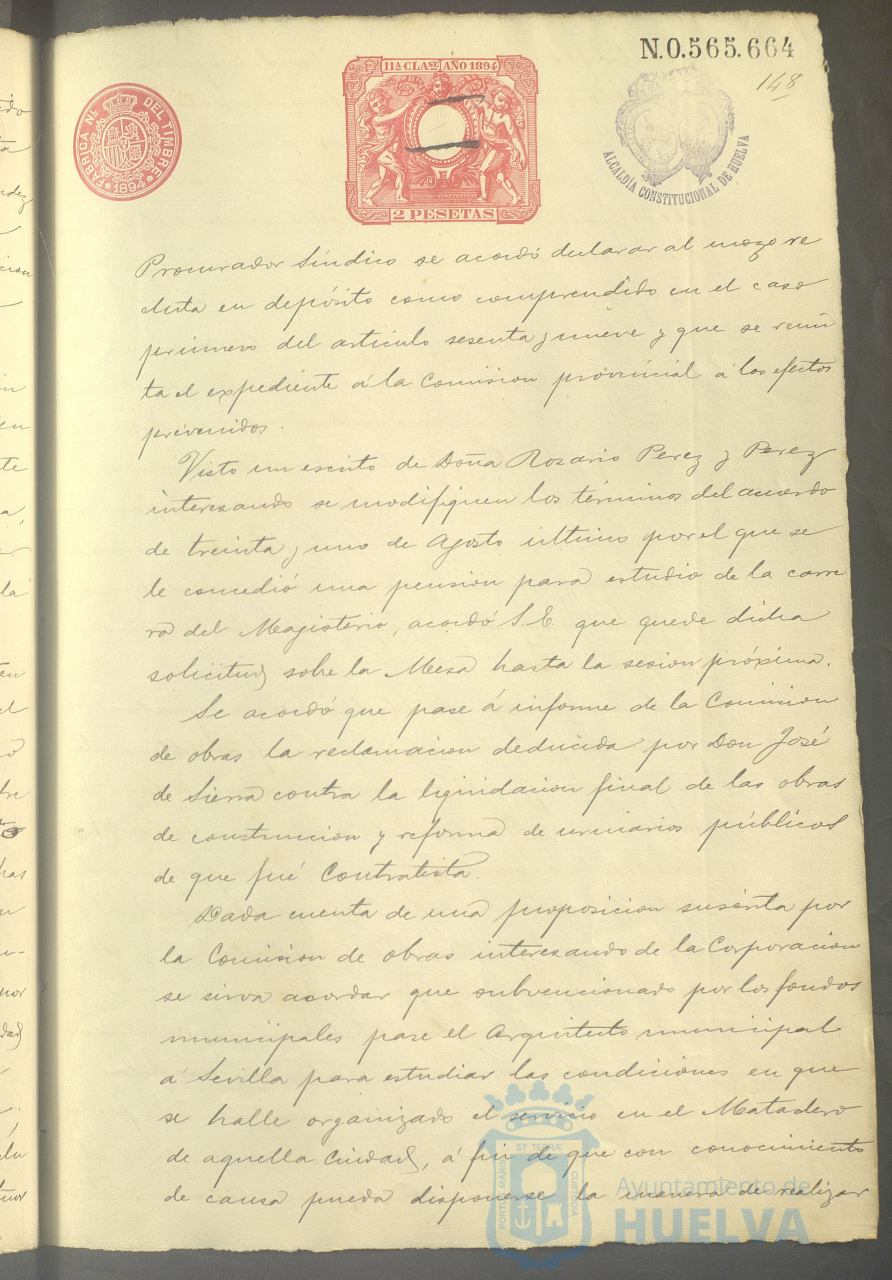 N.0.565.664
148
11ª CLASE AÑO 1894
2 PESETAS
FÁBRICA NL DEL TIMBRE
1894
ALCALDÍA CONSTITUCIONAL DE HUELVA
Procurador Síndico se acordó declarar al mozo re
cluta en depósito como comprendido en el caso
primero del artículo sesenta y nueve y que se remi
ta el expediente á la Comision provincial á los efectos
prevenidos.
Visto un escrito de Doña Rosario Perez y Perez
interesando se modifiquen los términos del acuerdo
de treinta y uno de Agosto último por el que se
le concedió una pension para estudio de la carre
ra del Magisterio, acordó S.E. que quede dicha
solicitud sobre la Mesa hasta la sesion próxima.
Se acordó que pase á informe de la Comision
de obras la reclamacion deducida por Don José
de Sierra contra la liquidacion final de las obras
de construccion y reforma de urinarios públicos
de que fué Contratista.
Dada cuenta de una proposicion suscrita por
la Comision de obras interesando de la Corporacion
se sirva acordar que subvencionado por los fondos
municipales pase el Arquitecto municipal
á Sevilla para estudiar las condiciones en que
se halle organizado el servicio en el Matadero
de aquella Ciudad, á fin de que con conocimiento
de causa pueda disponerse la manera de realizar
PORTUS MARIS ET TERRAE CUSTODIA
Ayuntamiento de
HUELVA